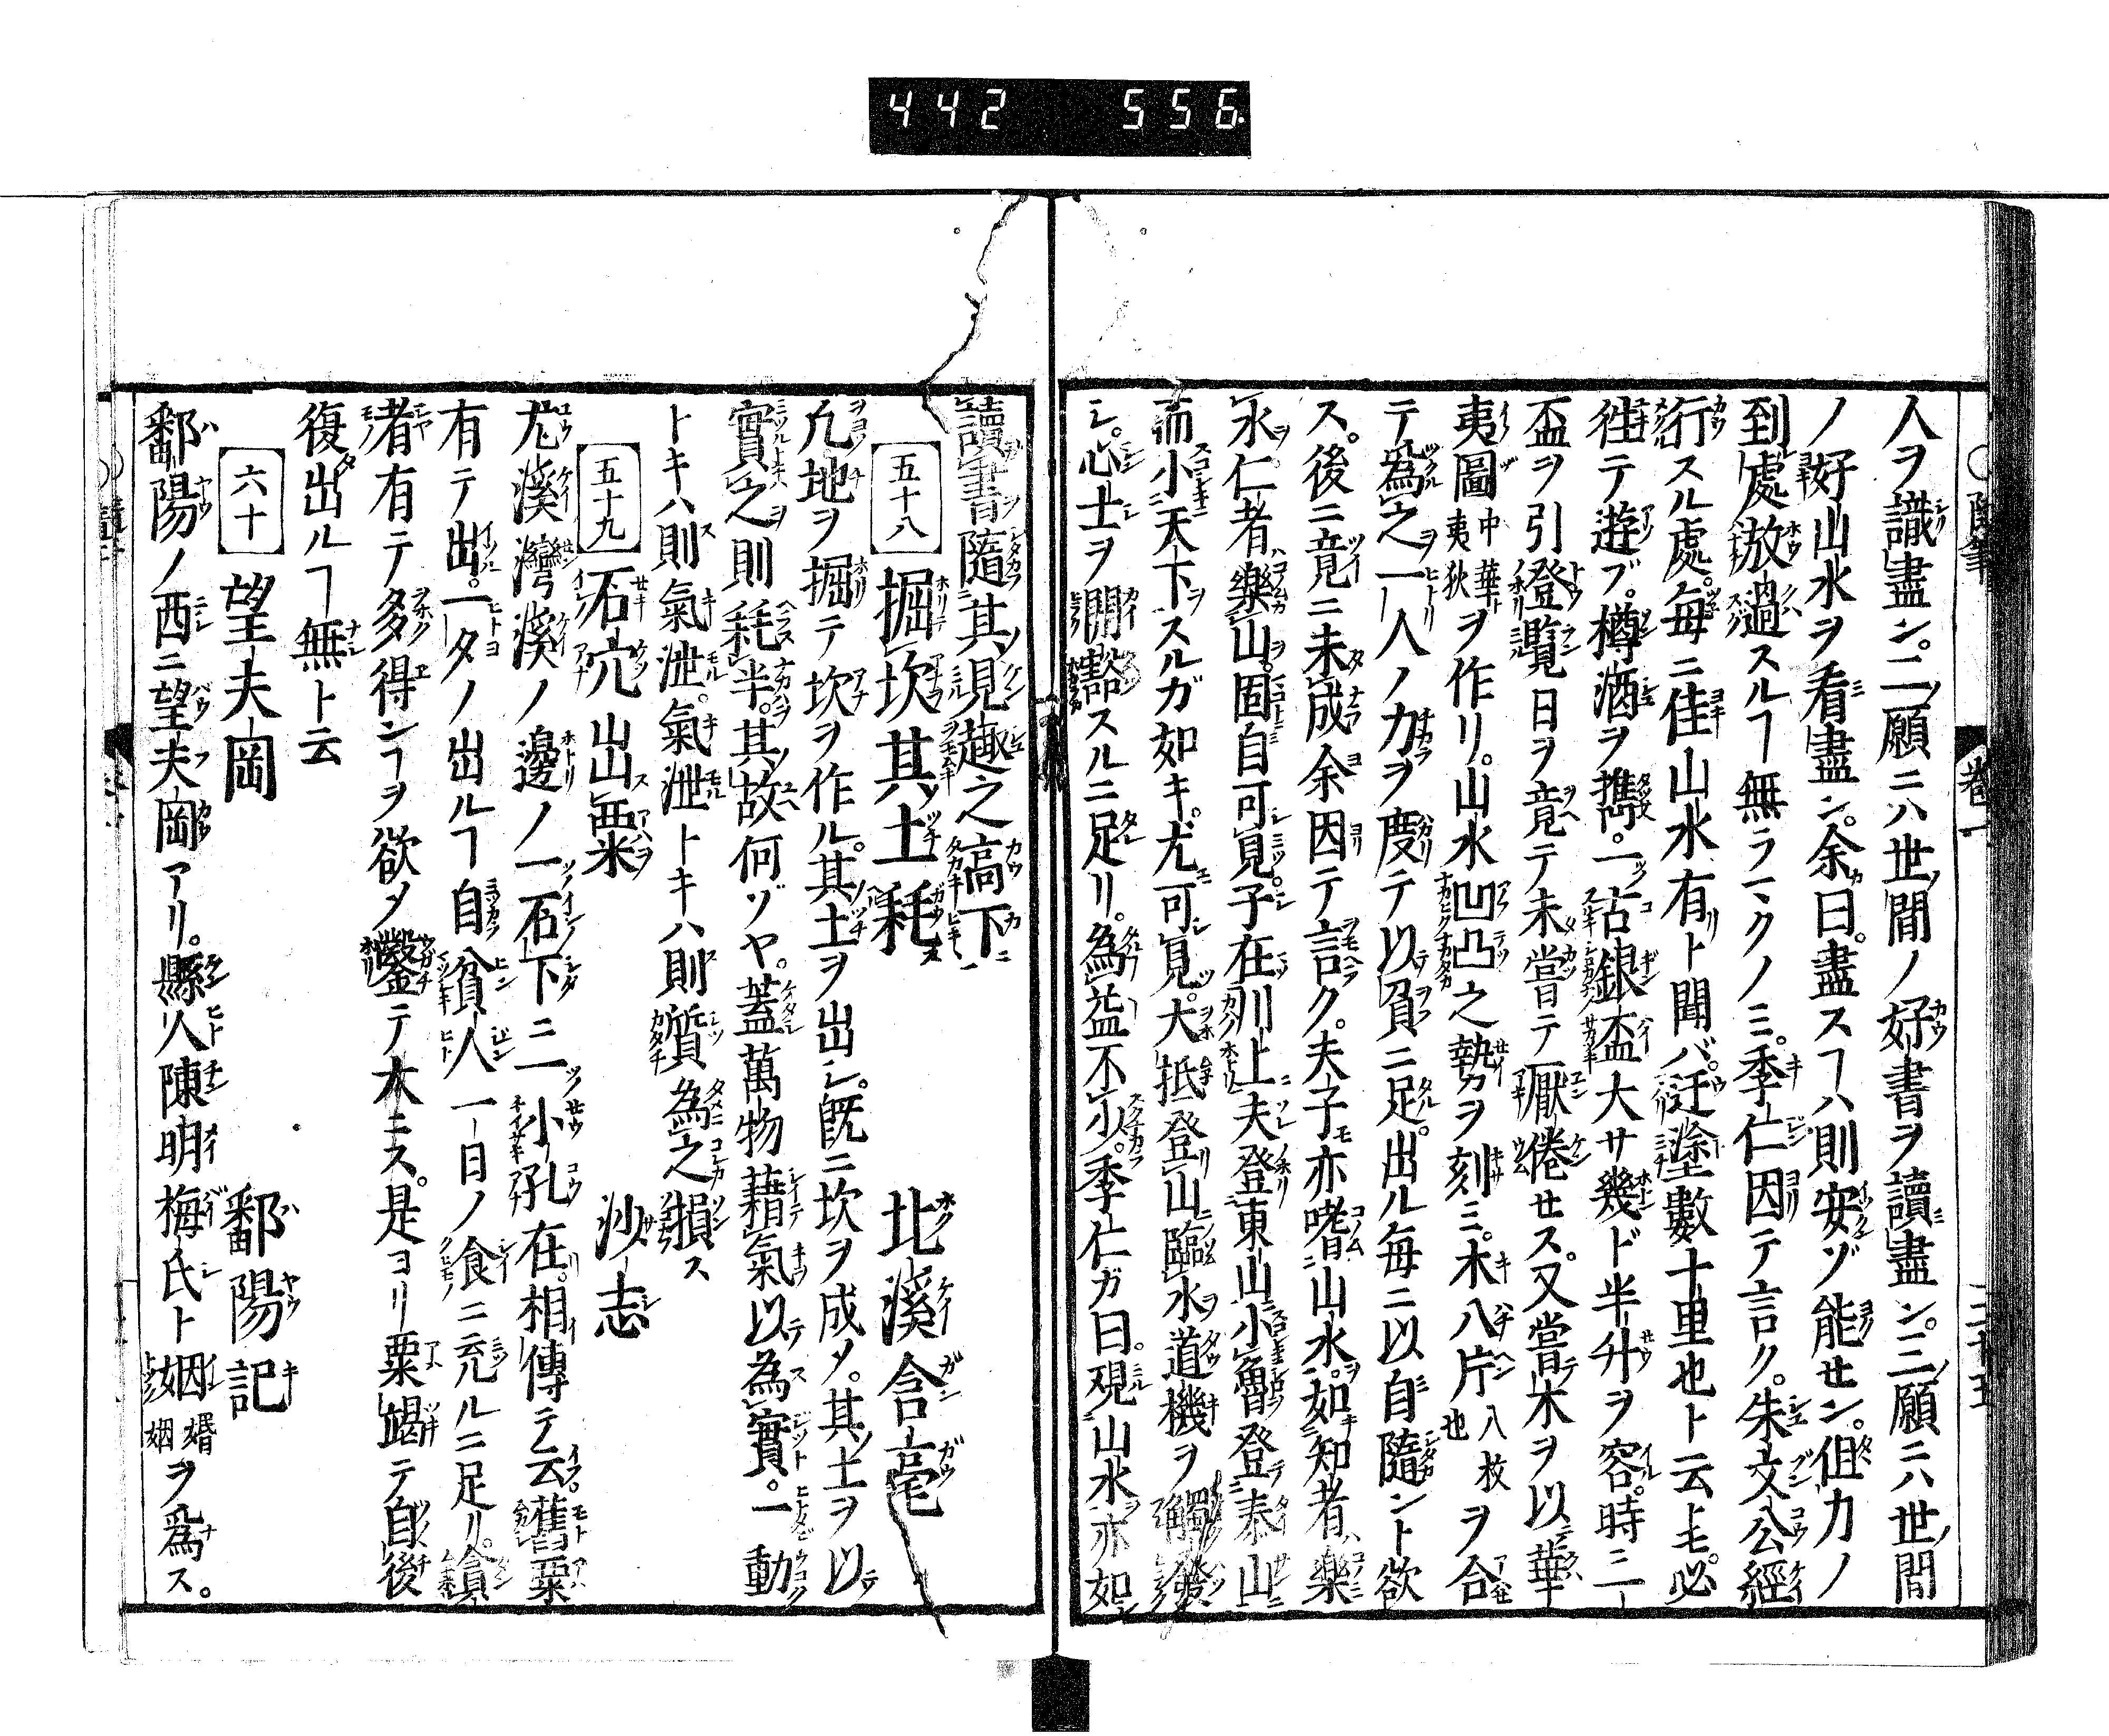 442 556
人ヲ識盡ン。二願ニハ世間ノ好書ヲ讀盡ン。三願ニハ世間
ノ好山水ヲ看盡ン。余曰。盡スヿハ則安ゾ能セン。但力ノ
到處放過スルヿ無ラマクノミ。季仁因テ言ク。朱文公經
行スル處。每ニ佳山水有ト聞バ。迂塗數十里也ト云ヒモ。必
徃テ遊ブ。樽酒ヲ攜。一古銀盃大サ幾ド半升ヲ容。時ニ一
盃ヲ引。登覽日ヲ竟テ未嘗テ厭倦セス。又嘗木ヲ以華
夷圖中華ト夷狄ヲ作リ。山水凹凸之埶ヲ刻ミ。木八片八枚也ヲ合
テ為之。一人ノ力ヲ度テ以負ニ足。出ル每ニ以自隨ント欲
ス。後ニ竟ニ未成余因テ言ク。夫子モ亦嗜山水。如知者樂
水。仁者樂山。固自可見。子在川上夫登東山小魯登泰山
而小天下スルガ如キ。尤可見。大抵登山臨水道機ヲ觸發
シ。心士ヲ開豁スルニ足リ。為益不少。季仁ガ曰。觀山水亦如
讀書隨其見趣之高下
五十八 掘坎其土耗 北溪含毫
凢地ヲ掘テ坎ヲ作ル。其土ヲ出シ。既ニ坎ヲ成メ。其土ヲ以テ
實之則耗半。其故何ゾヤ。蓋萬物藉氣以為實。一動
トキハ則氣泄。氣泄トキハ則質為之損ス
五十九 石穴出粟 沙志
尤溪灣溪ノ邊ノ一石下ニ二小孔在。相傳テ云。舊粟
有テ出。一夕ノ出ルヿ自貧人一日ノ食ニ充ルニ足リ。貪
者有テ多得ンヿヲ欲メ鑿テ大ニス。是ヨリ粟竭テ自後
復出ルヿ無ト云
六十 望夫岡 鄱陽記
鄱陽ノ西ニ望夫岡アリ。縣人陳明梅氏ト姻婚姻ヲ爲ス。